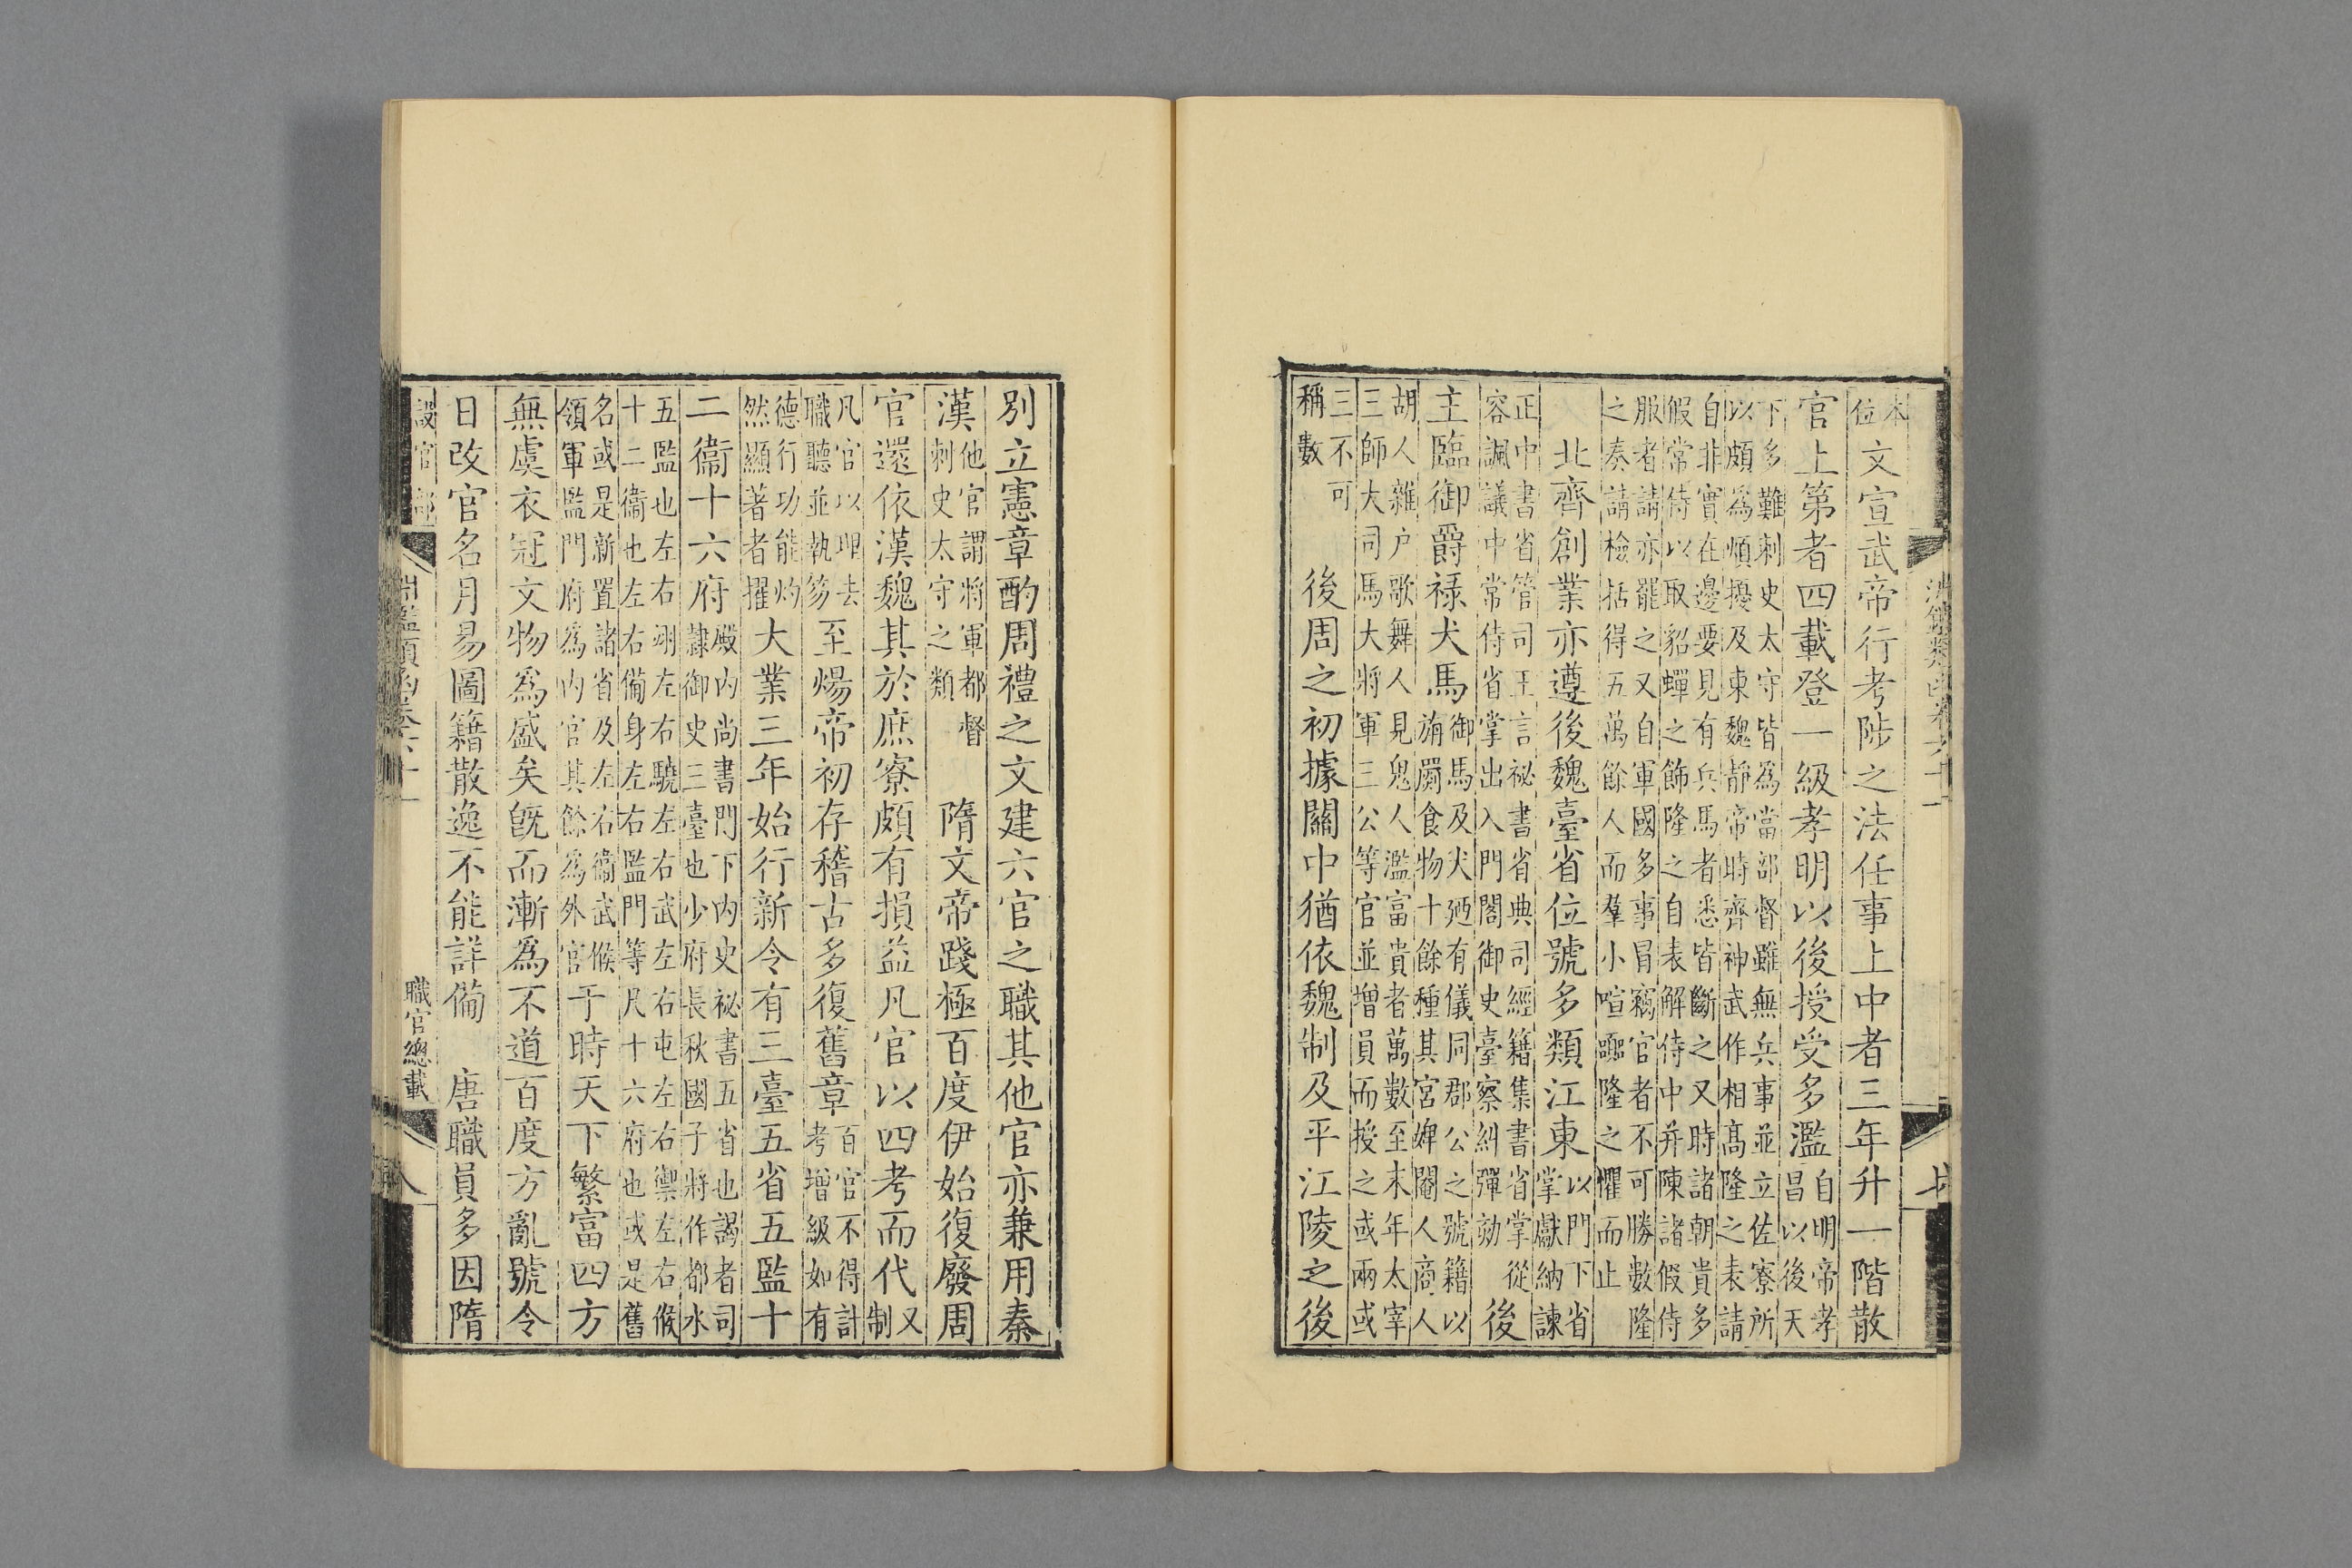 本
位
文宣武帝行考陟之法任事上中者三年升一階散
官上第者四載登一級孝明以後授受多濫
自明帝孝
昌以後天
下多難刺史太守皆為當部督雖無兵事並立佐寮所
以頗為煩擾及東魏靜帝時齊神武作相髙隆之表請
自非實在邊要見有兵馬者悉皆斷之又時諸朝貴多
假常侍以取貂蟬之飾隆之自表解侍中并陳諸假侍
服者請亦罷之又自軍國多事冒竊官者不可勝數隆
之奏請檢括得五萬餘人而羣小喧嚻隆之懼而止
北齊創業亦遵後魏臺省位號多類江東
以門下省
掌獻納諫
正中中書省管司王言祕書省典司經籍集書省掌從
容諷議中常侍省掌出入門閤御史臺察糾彈劾
後
主臨御爵禄犬馬
御馬及犬廼有儀同郡公之號籍以
旃罽食物十餘種其宮婢閹人商人
胡人雜户歌舞人見鬼人濫富貴者萬數至末年太宰
三師大司馬大將軍三公等官並增員而授之或兩或
三不可
稱數
後周之初據關中猶依魏制及平江陵之後
别立憲章酌周禮之文建六官之職其他官亦兼用秦
漢
他官謂將軍都督
刺史太守之類
隋文帝踐極百度伊始復廢周
官還依漢魏其於庶寮頗有損益凡官以四考而代
又
制
凡官以理去
職聽並執笏
至煬帝初存稽古多復舊章
百官不得計
考增級如有
德行功能灼
然顯著者擢
大業三年始行新令有三臺五省五監十
二衞十六府
殿内尚書門下内史祕書五省也謁者司
隸御史三臺也少府長秋國子將作都水
五監也左右翊左右驍左右武左右屯左右禦左右候
十二衞也左右備身左右監門等凡十六府也或是舊
名或是新置諸省及左右衞武候
領軍監門府為内官其餘為外官
于時天下繁富四方
無虞衣冠文物為盛矣旣而漸為不道百度方亂號令
日改官名月易圖籍散逸不能詳備
唐職員多因隋
設官部
淵鑑類函卷六十一
職官總載
八